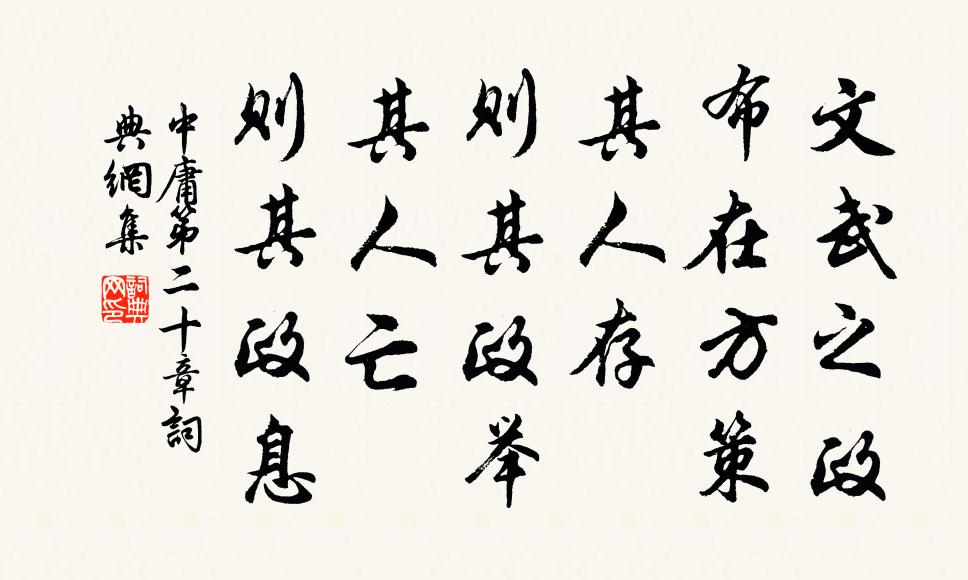 文武之政
布在方策
其人存
则其政举
其人亡
则其政息
中庸第二十章詞
典網集
詞典
网印